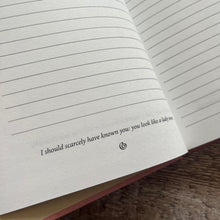 I should scarcely have known you: you look like a lady now